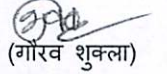 (गौरव शुक्ला)